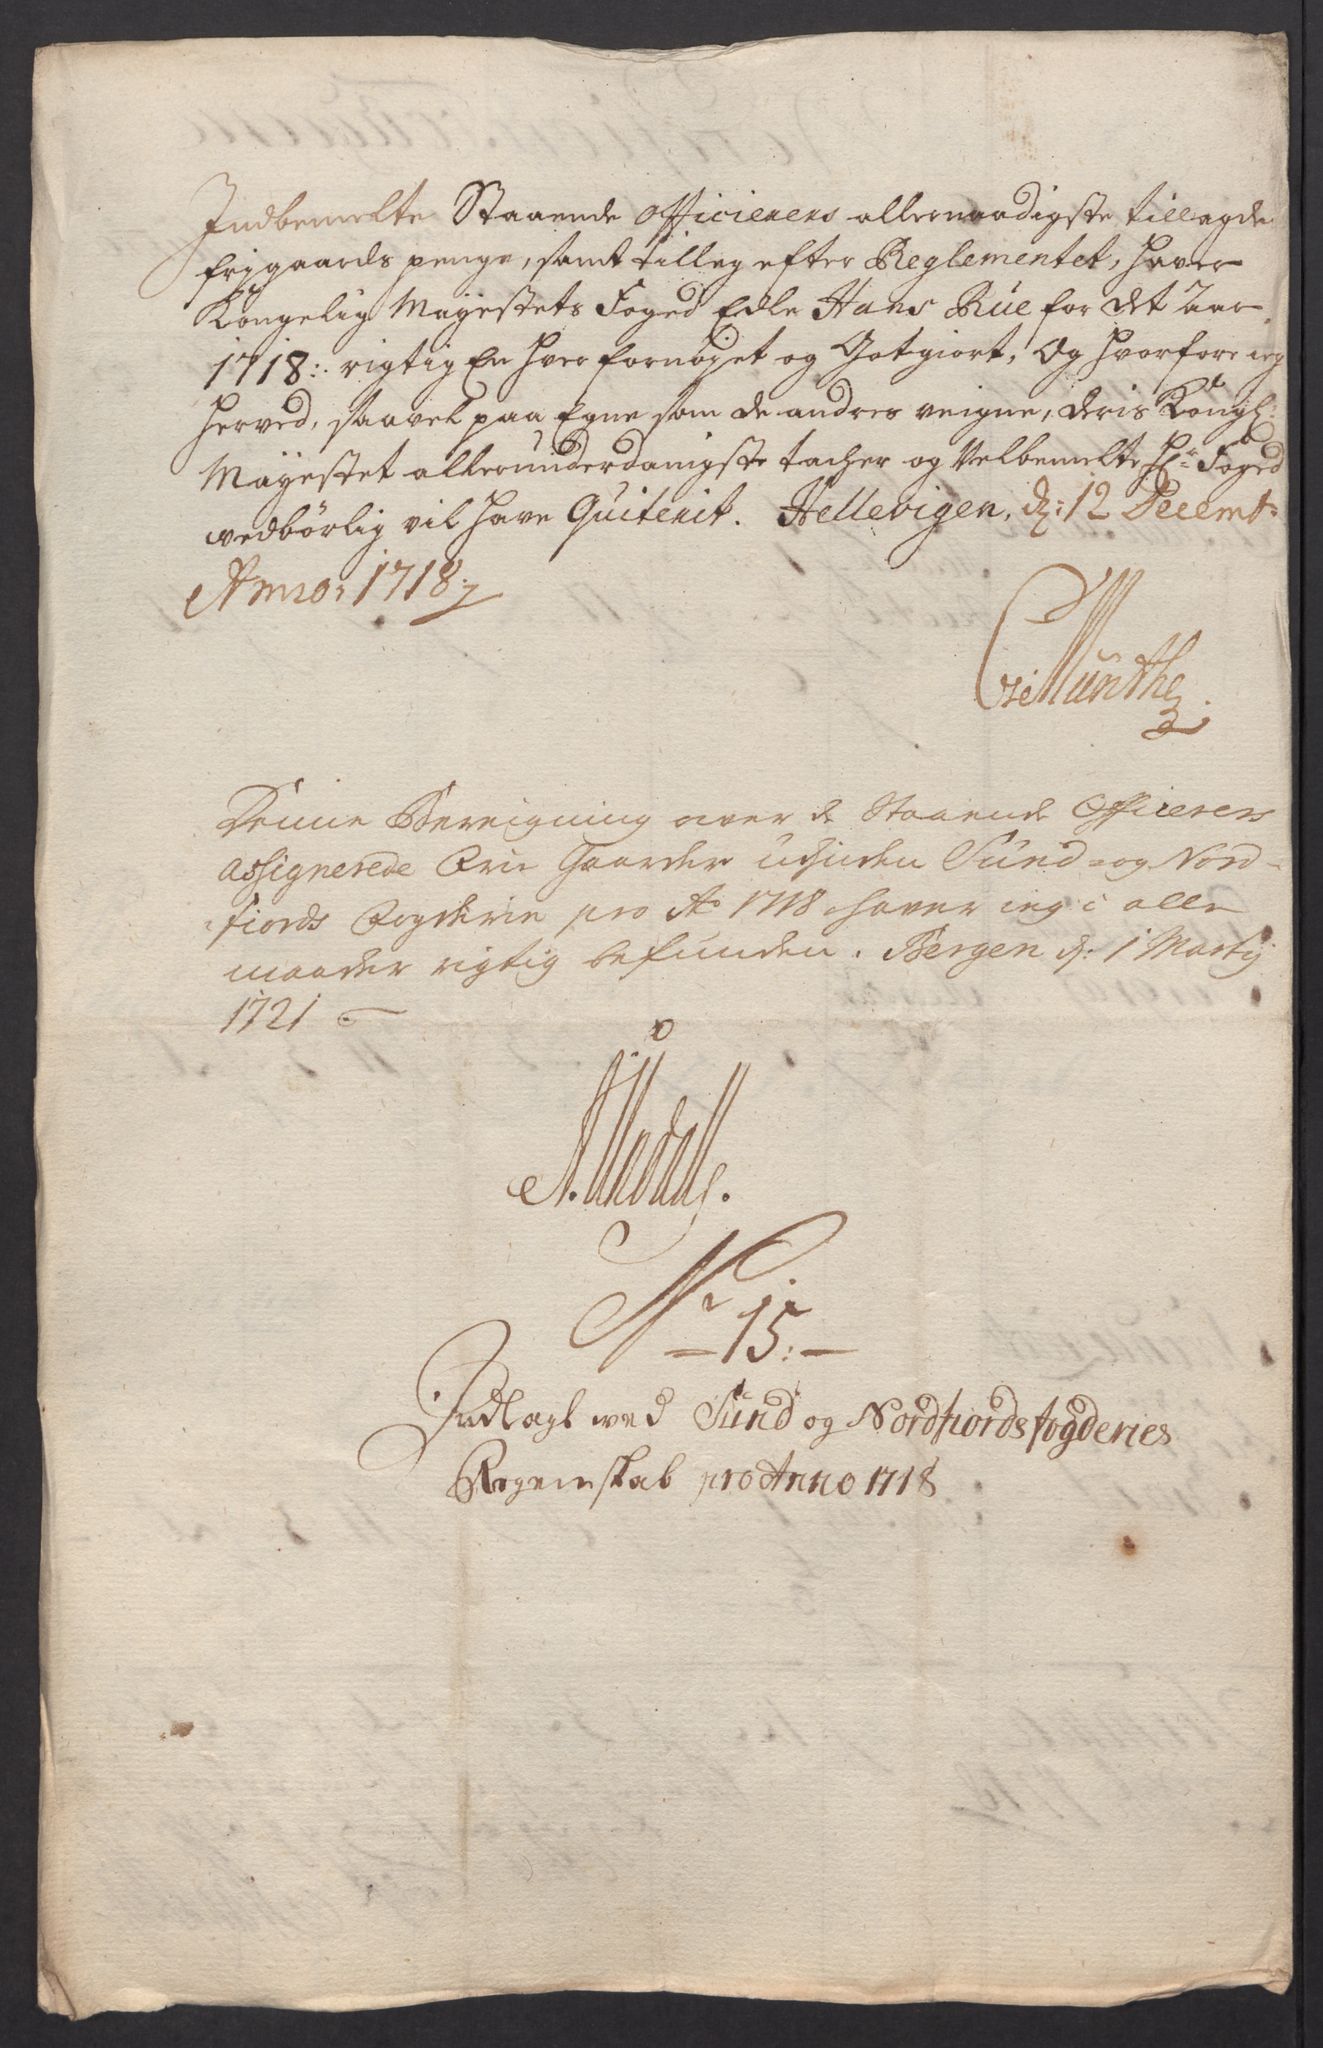 Indbemelte Staaende Officierers allernaadigste tillagde
frjgaards penge, samt tilleg efter Reglementet, haver
Kongelig Mayestets Foged Edle Hans Rüe for det Aar
1718: rigtig En hver fornøyet og Gotgiort, Og hvorfore ieg
herved, saavel paa Egne som de andres veigne, deris Kongl:
Mayestet allerunderdanigste tacher og Velbemelte Hr Foged
vedbörlig vil have Quiterit. Hellevigen, d: 12 Decembr:
Anno: 1718
Münthe
Denne Bereigning over de Staaende Officerers
assignerede Frie Gaarder udj inden Sünd- og Nord-
fiords Fogderie pro Ao 1718 haver ieg i alle
maader rigtig befunden. Bergen d: 1 Martij
1721
Nr 15:
Indlagt wed Sünd og Nordfiords fogderies
Regenskab pro Anno 1718